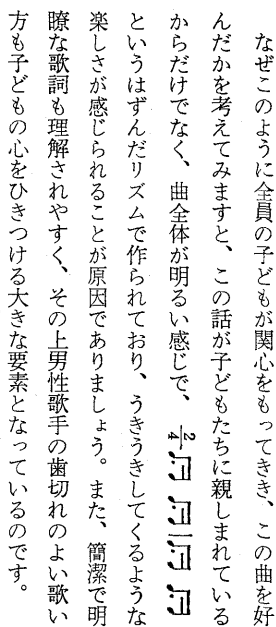 なぜこのように全員の子どもが関心をもってきき、この曲を好
んだかを考えてみますと、この話が子どもたちに親しまれている
からだけでなく、曲全体が明るい感じで、2/4
というはずんだリズムで作られており、うきうきしてくるような
楽しさが感じられることが原因でありましょう。また、簡潔で明
瞭な歌詞も理解されやすく、その上男性歌手の歯切れのよい歌い
方も子どもの心をひきつける大きな要素となっているのです。